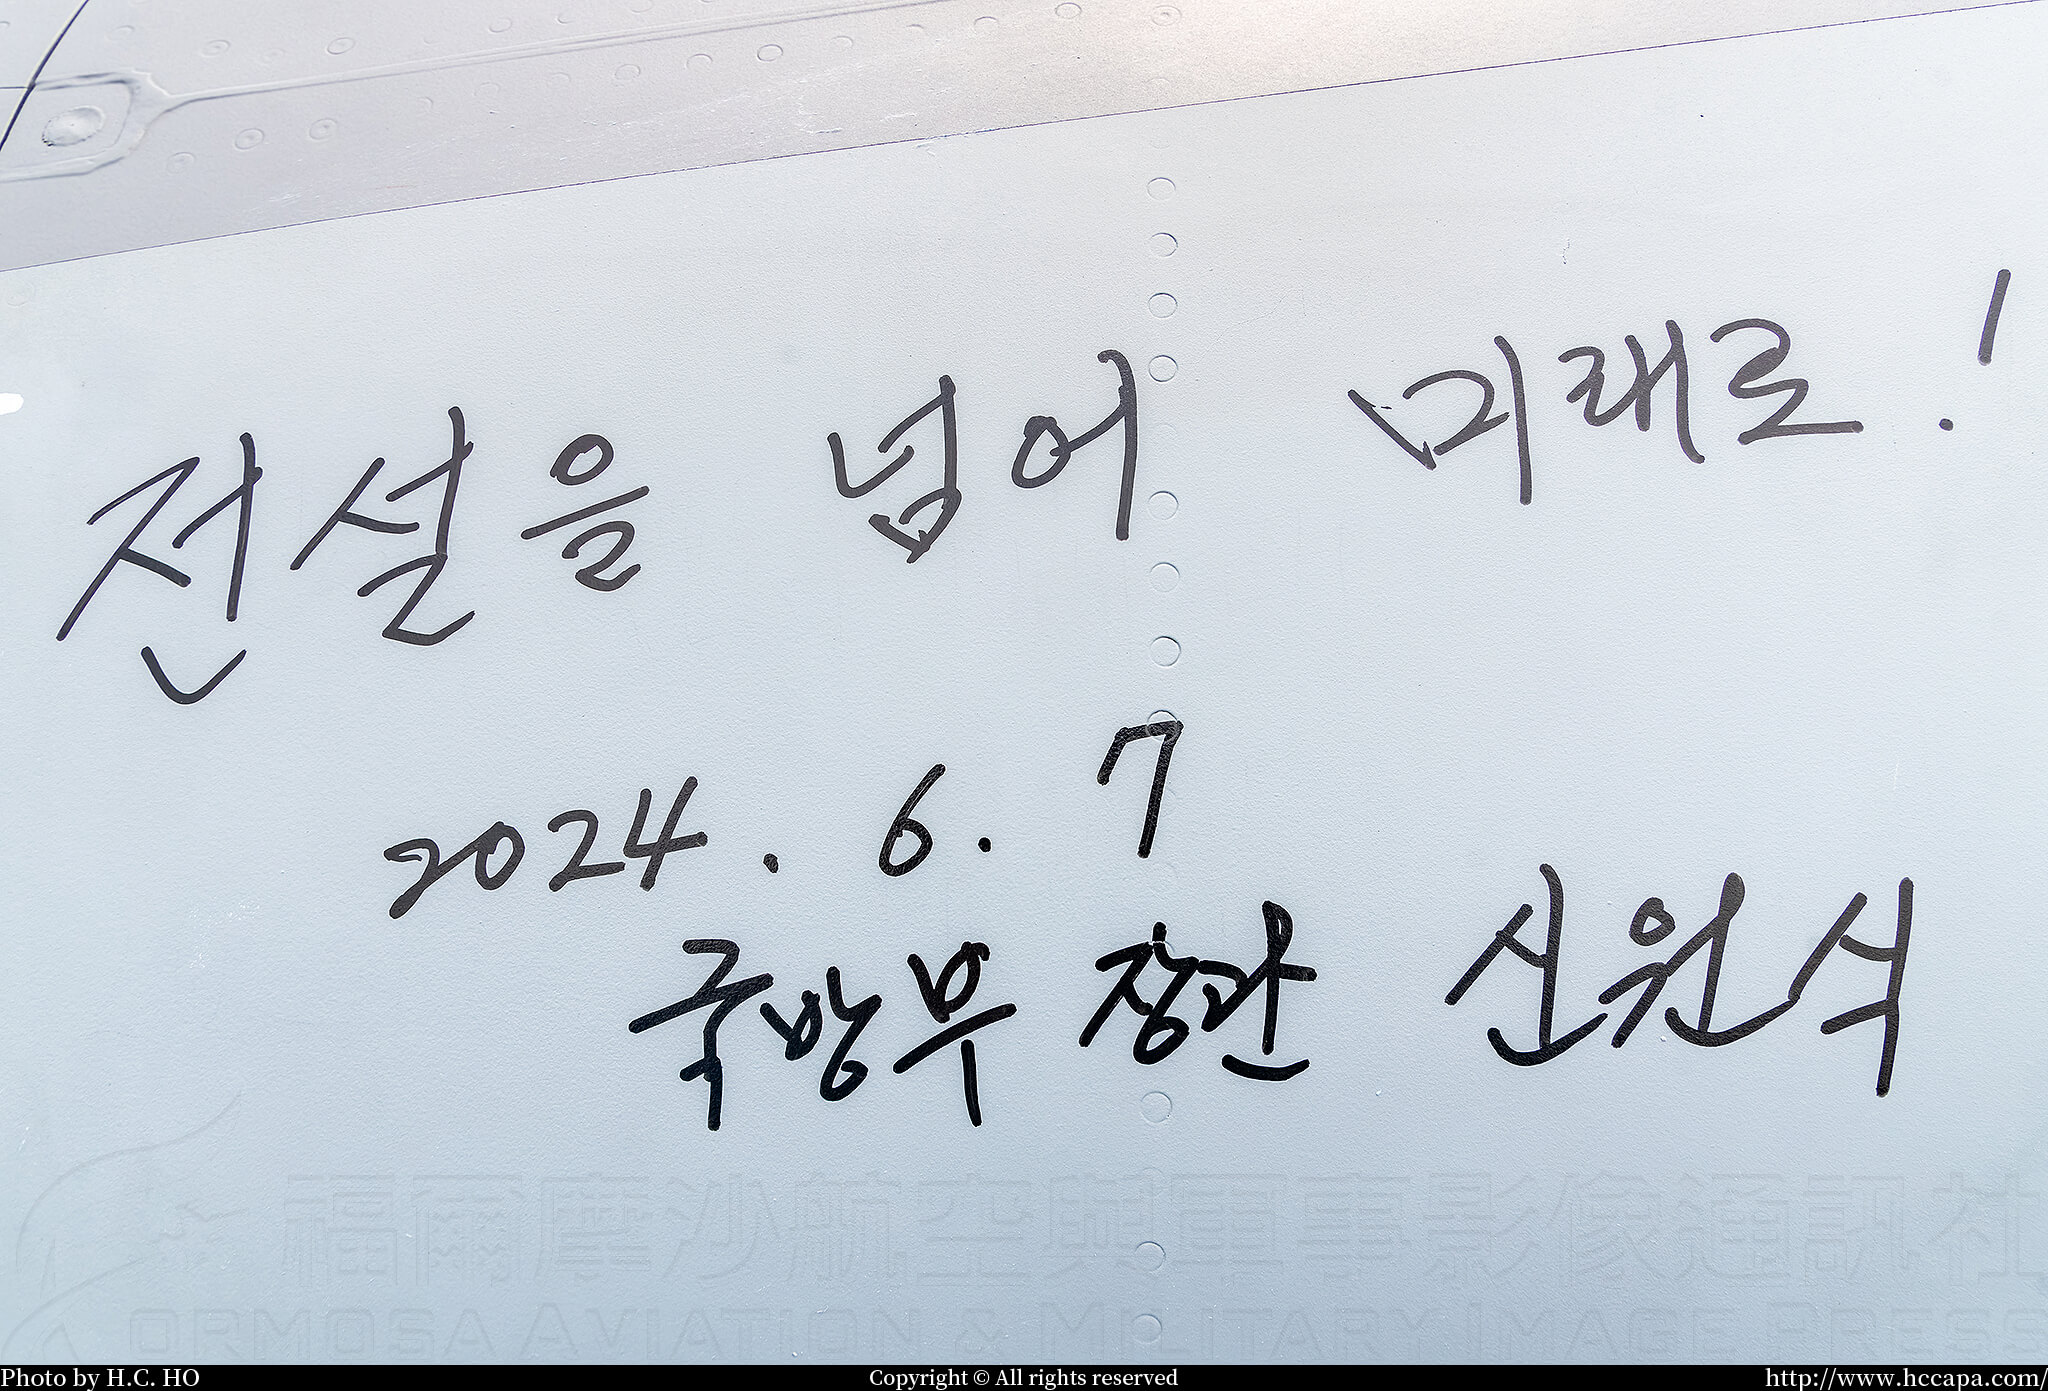 전설을 넘어 미래로!
2024. 6. 7
국방부 장관 신원식
福爾摩沙航空與軍事影像通訊社
FORMOSA AVIATION & MILITARY IMAGE PRESS
Photo by H.C. HO
Copyright © All rights reserved
http://www.hccapa.com/